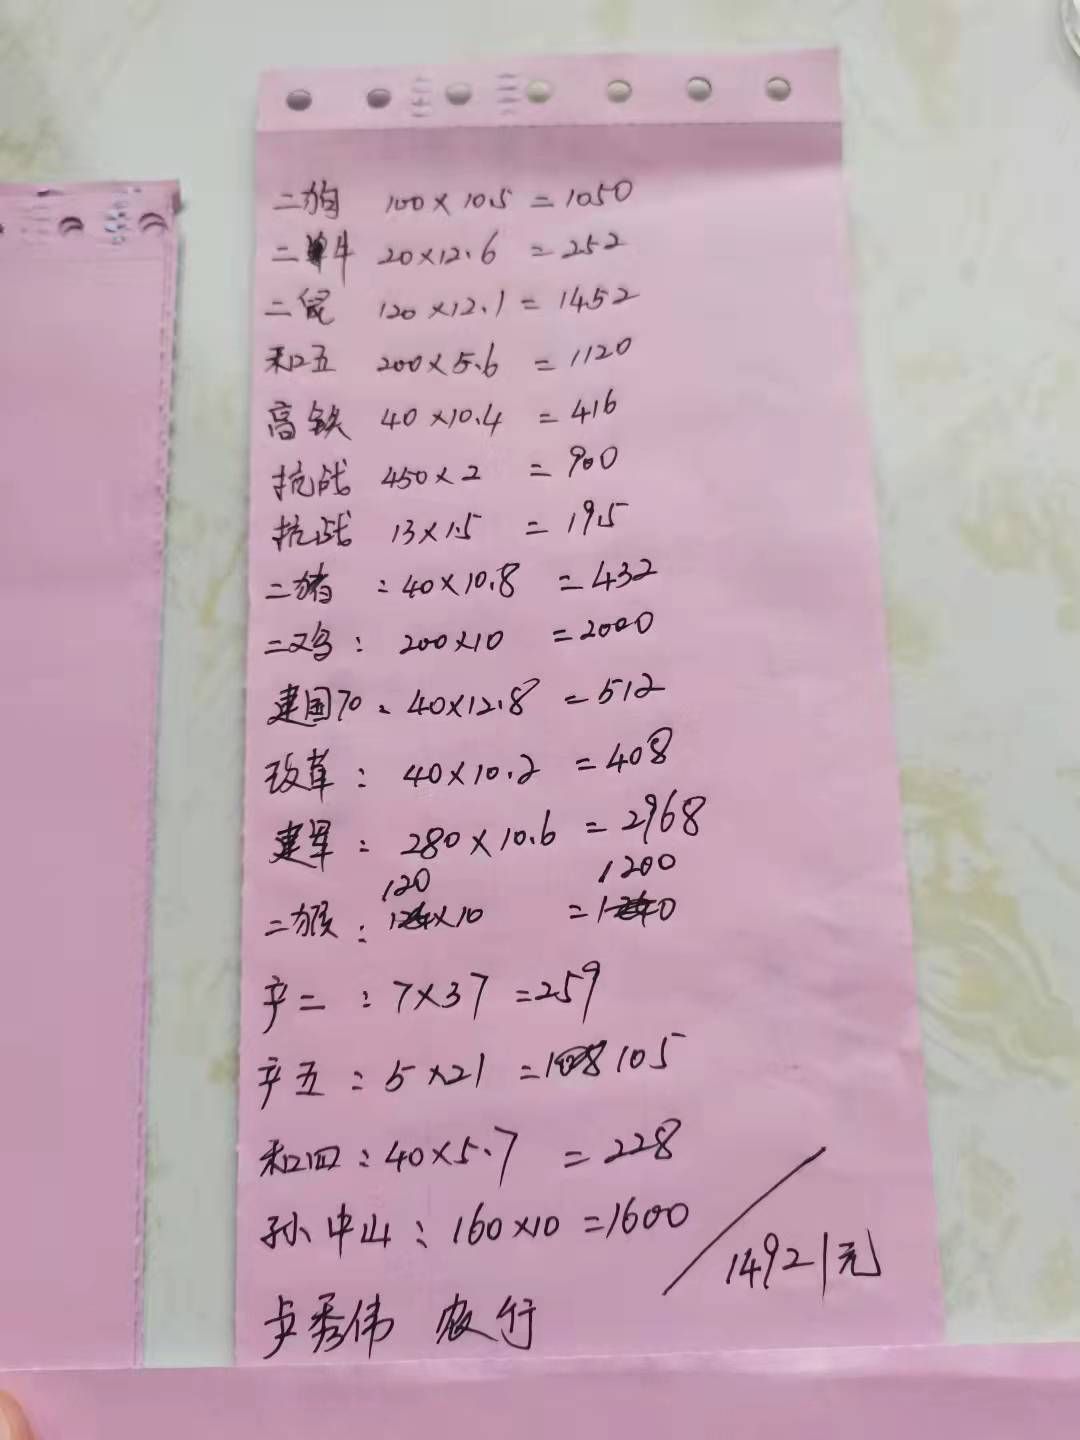 二狗 100×10.5=1050
二牛 20×12.6=252
二鼠 120×12.1=1452
和五 200×5.6=1120
高铁 40×10.4=416
抗战 450×2=900
抗战 13×1.5=19.5
二猪:40×10.8=432
二鸡:200×10=2000
建国70:40×12.8=512
改革:40×10.2=408
建军:280×10.6=2968
120 1200
二猴:×10=
辛二:7×37=259
辛五:5×21=105
和四:40×5.7=228
孙中山:160×10=1600
14921元
卢秀伟 农行